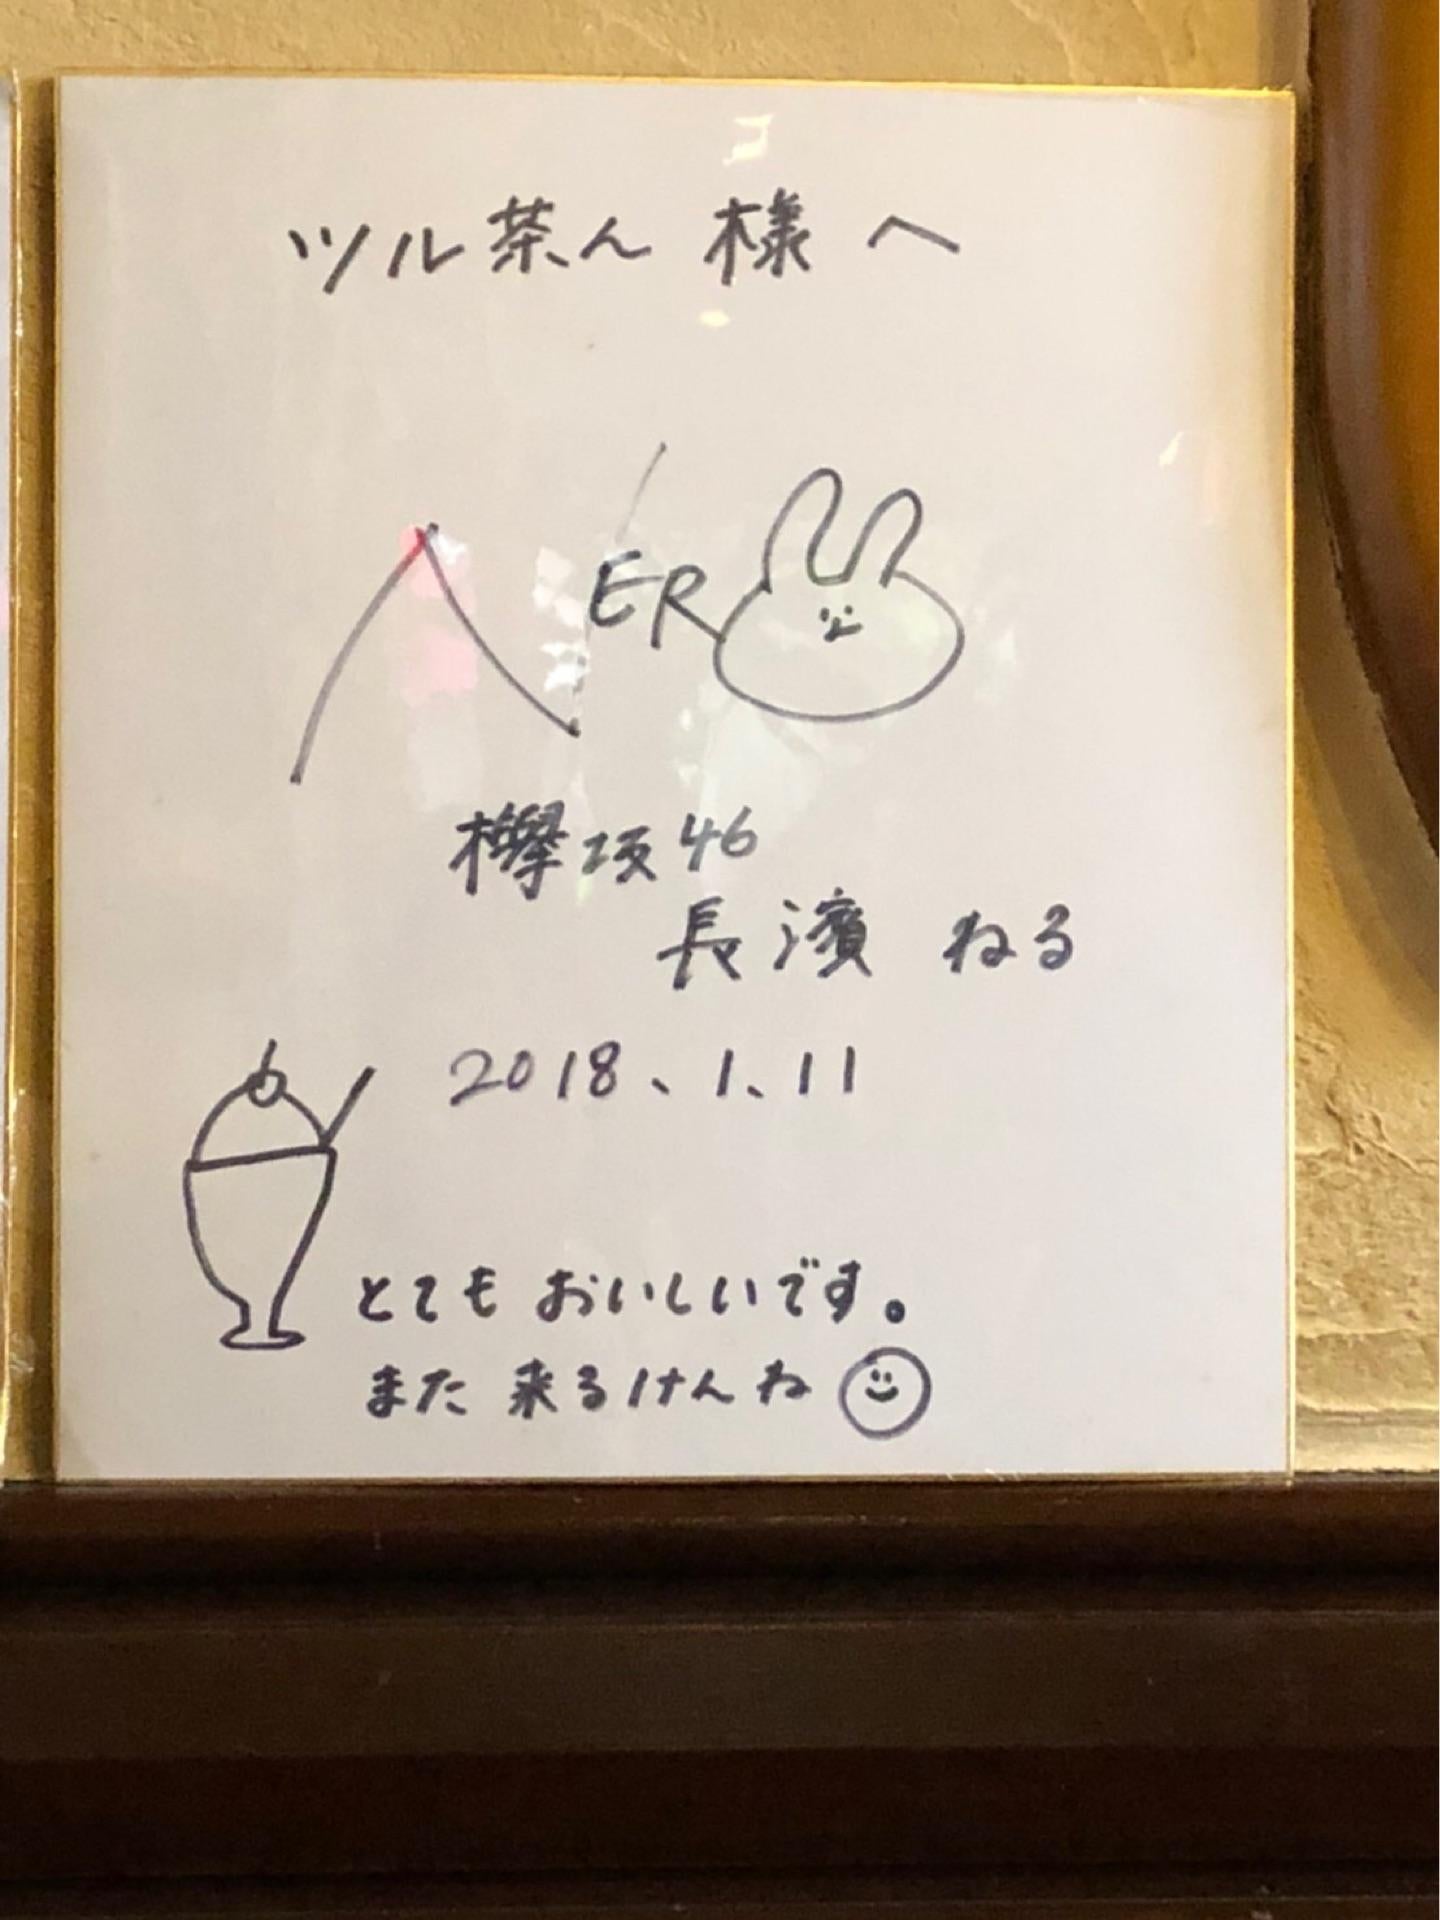 ツル茶ん 様 へ
NERU
欅坂46
長濱 ねる
2018、1、11
とても おいしいです。
また 来るけんね